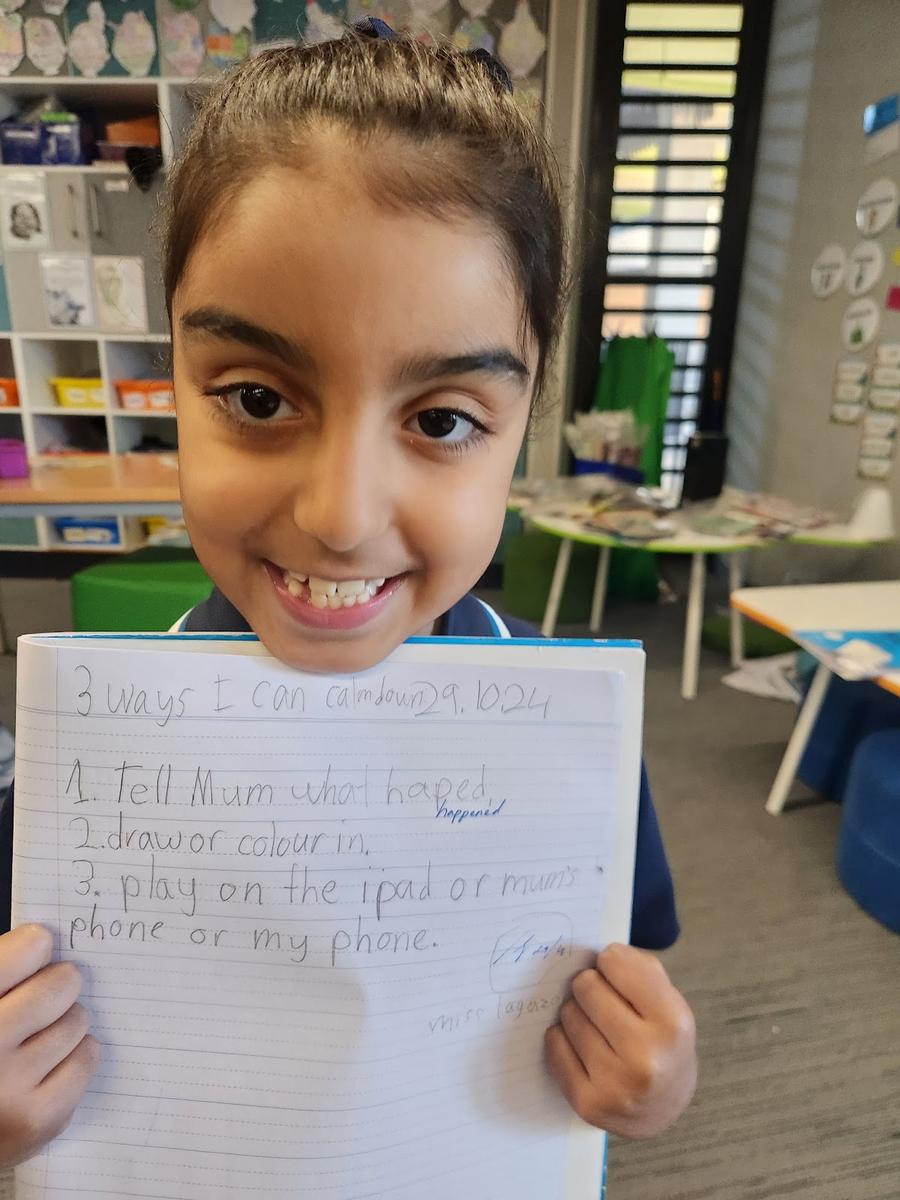 3 ways I can calmdown 29.10.24
1. Tell Mum what haped.
happened
2. draw or colour in.
3. play on the ipad or mum's
phone or my phone.
miss